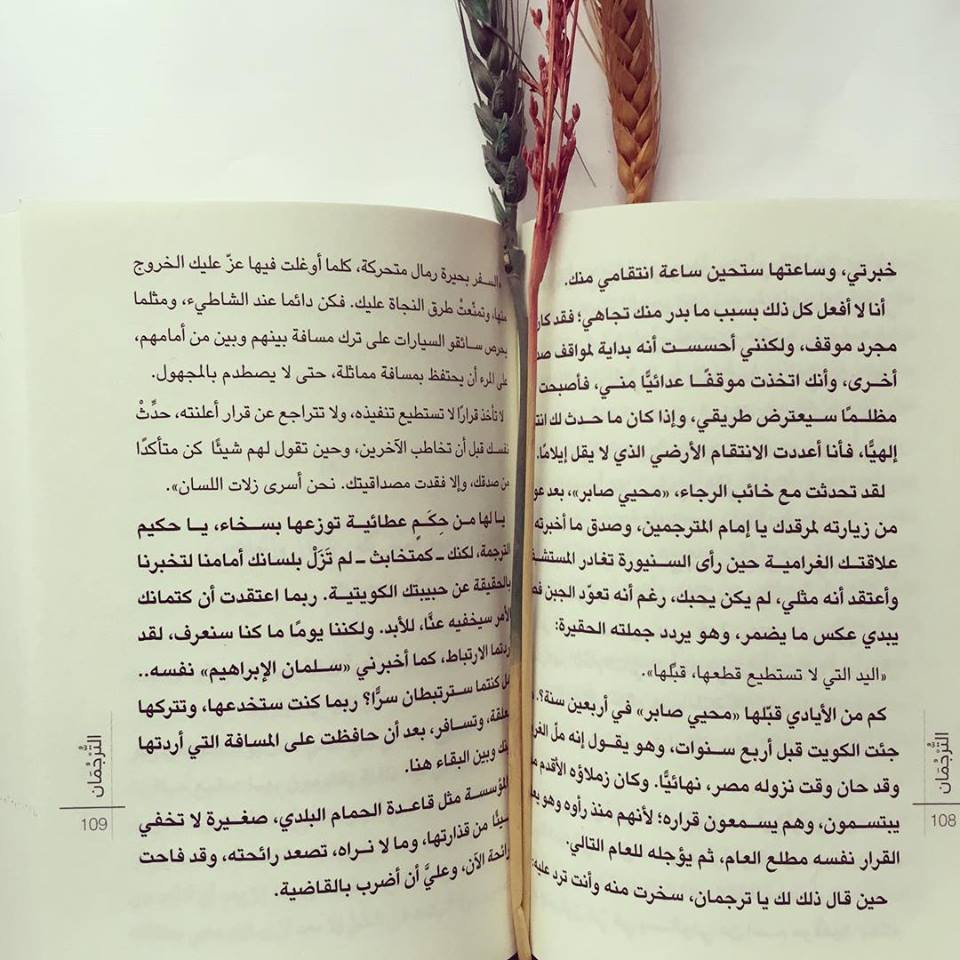 خبرتي، وساعتها ستحين ساعة انتقامي منك.
أنا لا أفعل كل ذلك بسبب ما بدر منك تجاهي؛ فقد كان
مجرد موقف، ولكنني أحسست أنه بداية لمواقف
أخرى، وأنك اتخذت موقفًا عدائيًّا مني، فأصبحت
مظلمًا سيعترض طريقي، وإذا كان ما حدث لك
إلهيًّا، فأنا أعددت الانتقام الأرضي الذي لا يقل إيلامًا.
لقد تحدثت مع خائب الرجاء، «محيي صابر»، بعد
من زيارته لمرقدك يا إمام المترجمين، وصدق ما أخبرته
علاقتك الغرامية حين رأى السنيورة تغادر
وأعتقد أنه مثلي، لم يكن يحبك، رغم أنه تعوّد الجبن
يبدي عكس ما يضمر، وهو يردد جملته الحقيرة:
«اليد التي لا تستطيع قطعها، قبِّلها».
كم من الأيادي قبّلها «محيي صابر» في أربعين سنة؟.
جئت الكويت قبل أربع سنوات، وهو يقول إنه ملّ
وقد حان وقت نزوله مصر، نهائيًّا. وكان زملاؤه الأقدم
يبتسمون، وهم يسمعون قراره؛ لأنهم منذ رأوه وهو
القرار نفسه مطلع العام، ثم يؤجله للعام التالي.
حين قال ذلك لك يا ترجمان، سخرت منه وأنت ترد عليه:
التُّرْجُمَان
108
«السفر بحيرة رمال متحركة، كلما أوغلت فيها عزّ عليك الخروج
منها، وتمنّعتْ طرق النجاة عليك. فكن دائما عند الشاطيء، ومثلما
يحرص سائقو السيارات على ترك مسافة بينهم وبين من أمامهم،
على المرء أن يحتفظ بمسافة مماثلة، حتى لا يصطدم بالمجهول.
لا تأخذ قرارًا لا تستطيع تنفيذه، ولا تتراجع عن قرار أعلنته، حدِّثْ
نفسك قبل أن تخاطب الآخرين، وحين تقول لهم شيئًا كن متأكدًا
من صدقك، وإلا فقدت مصداقيتك. نحن أسرى زلات اللسان».
يا لها من حِكَمٍ عطائية توزعها بسخاء، يا حكيم
الترجمة، لكنك ـ كمتخابث ـ لم تَزَلْ بلسانك أمامنا لتخبرنا
بالحقيقة عن حبيبتك الكويتية. ربما اعتقدت أن كتمانك
الأمر سيخفيه عنَّا، للأبد. ولكننا يومًا ما كنا سنعرف، لقد
أردتما الارتباط، كما أخبرني «سلمان الإبراهيم» نفسه..
هل كنتما سترتبطان سرًّا؟ ربما كنت ستخدعها، وتتركها
معلقة، وتسافر، بعد أن حافظت على المسافة التي أردتها
بينك وبين البقاء هنا.
المؤسسة مثل قاعدة الحمام البلدي، صغيرة لا تخفي
شيئًا من قذارتها، وما لا نراه، تصعد رائحته، وقد فاحت
رائحة الآن، وعليَّ أن أضرب بالقاضية.
التُّرْجُمَان
109